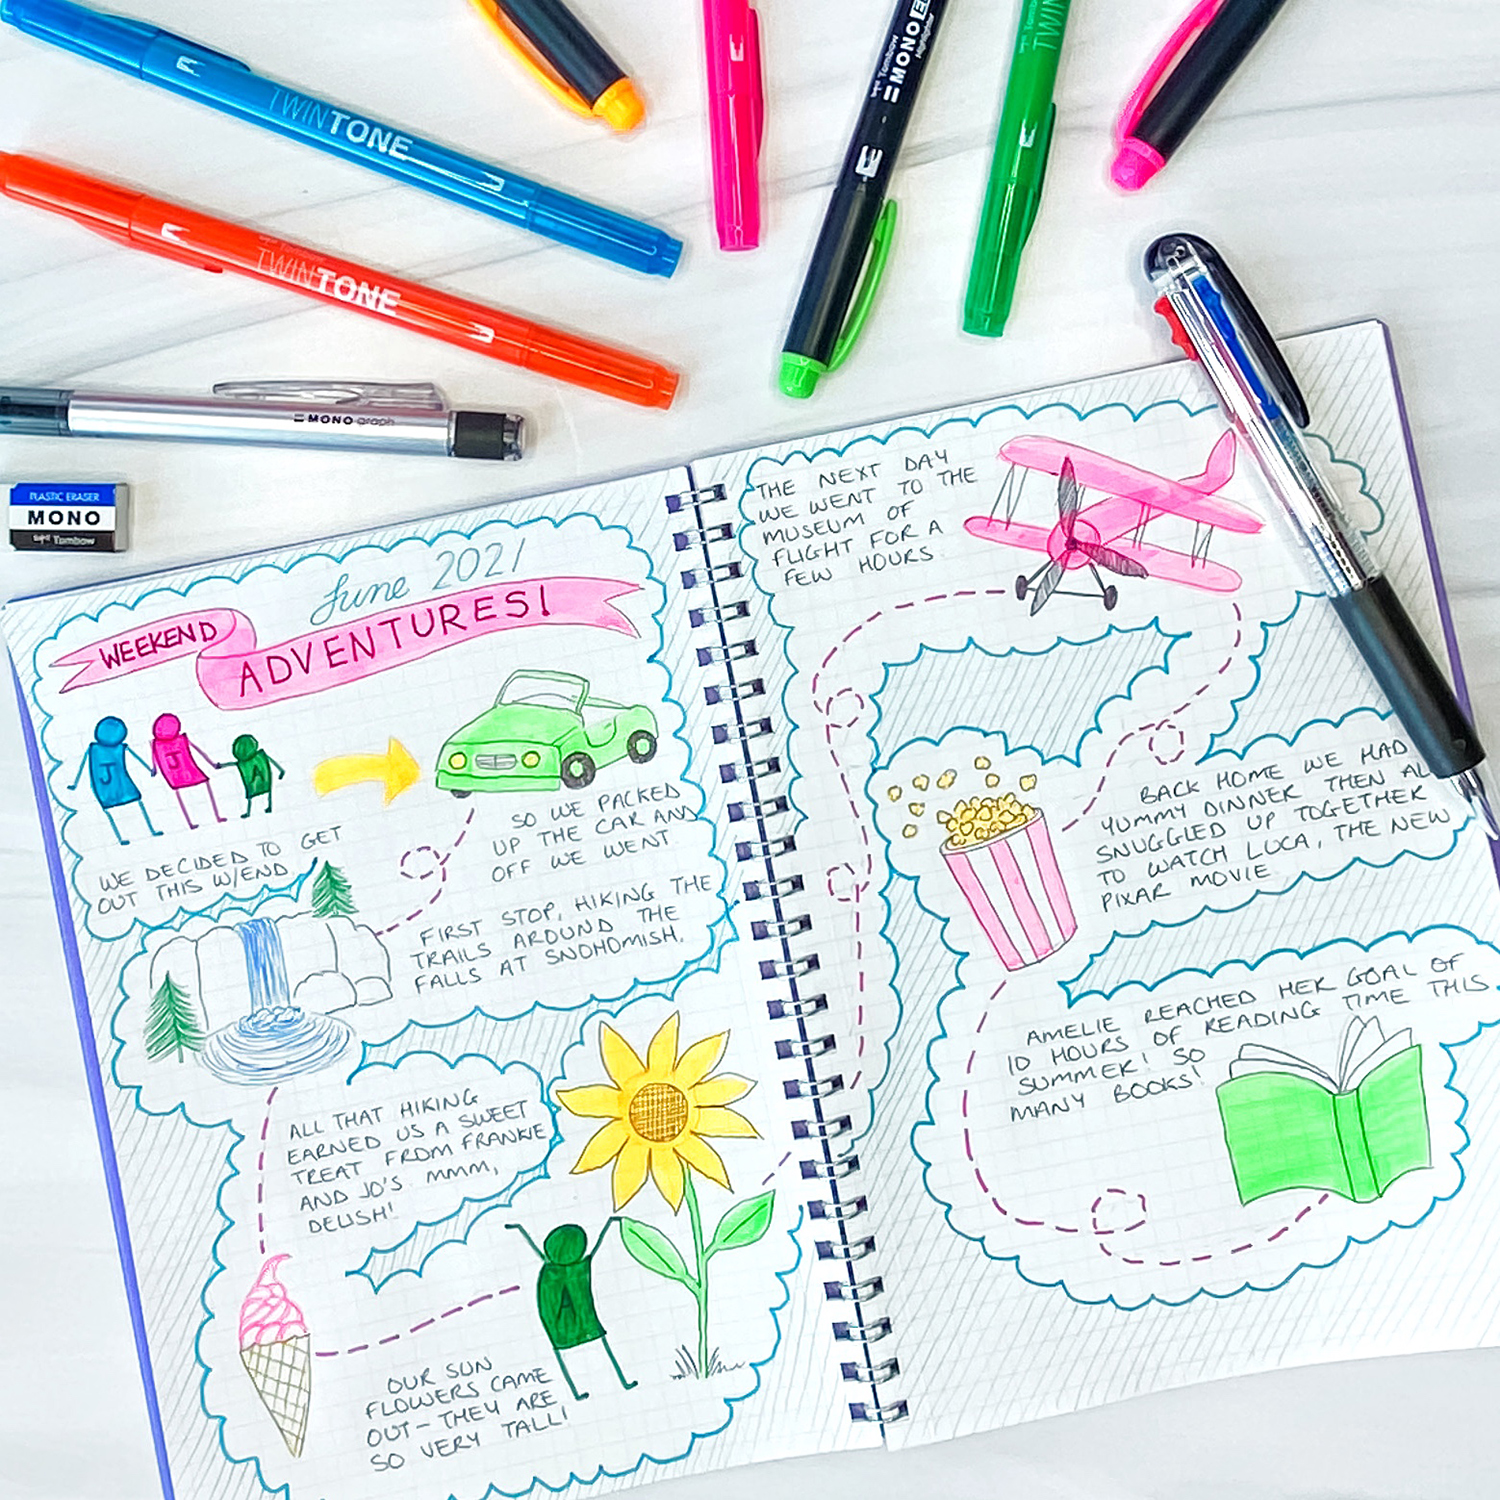 TWINTONE
Tombow
TWINTONE
MONO graph
PLASTIC ERASER
MONO
Tombow
Tombow
MONO
Highlighter
TWIN
June 2021
WEEKEND
ADVENTURES!
J
J
A
WE DECIDED TO GET
OUT THIS W/END
SO WE PACKED
UP THE CAR AND
OFF WE WENT.
FIRST STOP, HIKING THE
TRAILS AROUND THE
FALLS AT SNOHOMISH.
ALL THAT HIKING
EARNED US A SWEET
TREAT FROM FRANKIE
AND JO'S. MMM,
DELISH!
A
OUR SUN
FLOWERS CAME
OUT - THEY ARE
SO VERY TALL!
THE NEXT DAY
WE WENT TO THE
MUSEUM OF
FLIGHT FOR A
FEW HOURS.
BACK HOME WE HAD
YUMMY DINNER THEN
SNUGGLED UP TOGETHER
TO WATCH LUCA, THE NEW
PIXAR MOVIE
AMELIE REACHED HER GOAL OF
10 HOURS OF READING TIME THIS
SUMMER! SO
MANY BOOKS!